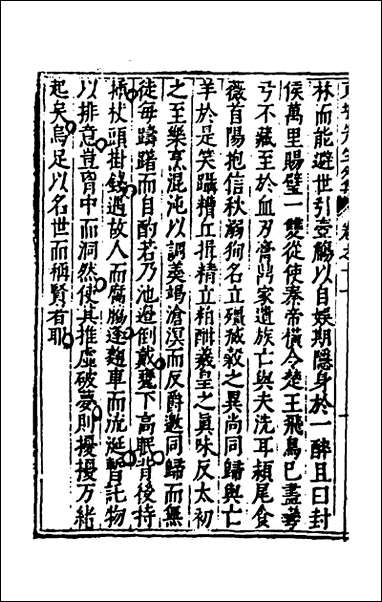 林而能避世引壺觴以自娛期隱身於一醉且曰封
侯萬里賜璧一雙從使秦帝橫令楚王飛鳥已盡彎
弓不藏至於血刃膏鼎家遺族亡與夫洗耳潁尾食
薇首陽抱信秋溺狥名立殭臧穀之異尚同歸與亡
羊於是笑躡糟丘揖精立粕酣羲皇之真味反太初
之至樂烹混沌以調羹竭滄溟而反爵邀同歸而無
徒每躊躇而自酌若乃池邊倒載甕下高眠背後持
插杖頭掛錢遇故人而腐脇逢麴車而流涎暫託物
以排意豈胷中而洞然使其推虛破夢則擾擾万緒
起矣烏足以名世而稱賢有耶